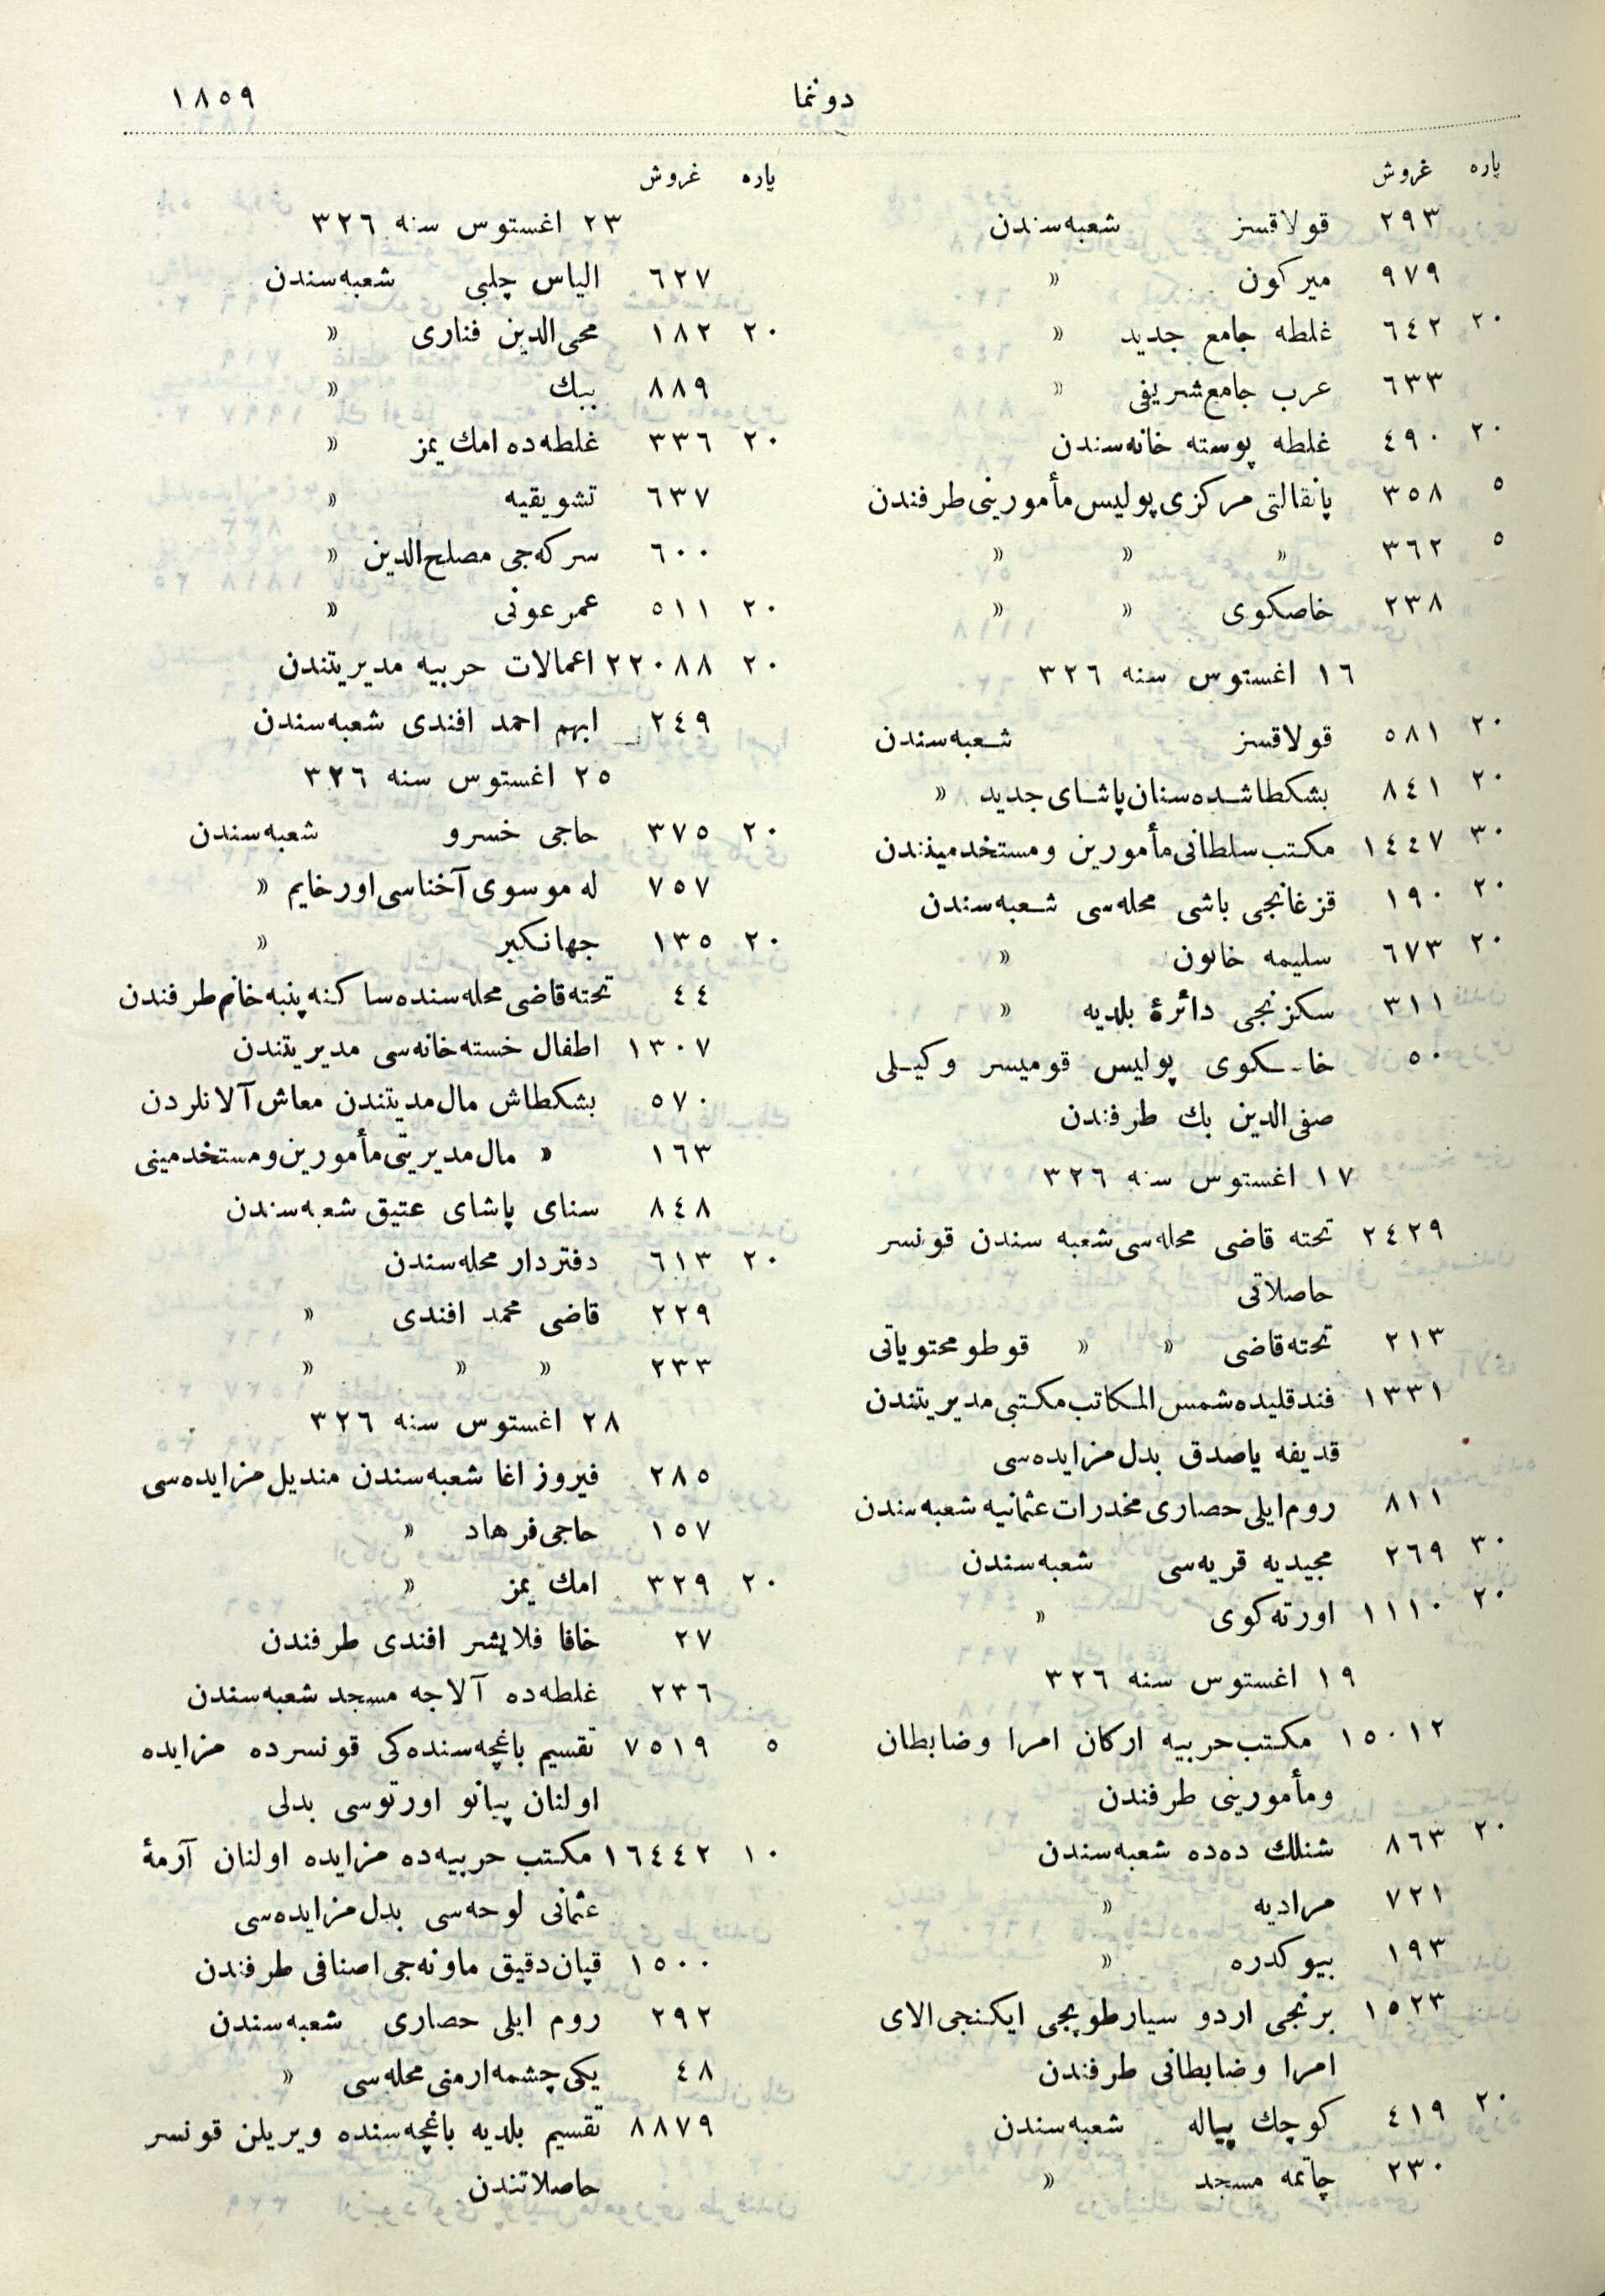 دوننما ١٨٥٩
پاره غروش
٢٩٣ قولاقسز شعبه‌سندن
٩٧٩ میرکون »
٢٠ ٦٤٢ غلطه جامع جدید »
٦٣٣ عرب جامع شریفی »
٢٠ ٤٩٠ غلطه پوسته خانه‌سندن
٥ ٣٥٨ پانقالتی مرکزی پولیس مأمورینی طرفندن
٥ ٣٦٢ » » »
٢٣٨ خاصکوی » »
١٦ اغستوس سنه ٣٢٦
٢٠ ٥٨١ قولاقسز شعبه‌سندن
٢٠ ٨٤١ بشکطاشده سنان پاشای جدید »
٣٠ ١٤٤٧ مکتب سلطانی مأمورین و مستخدمیندن
٢٠ ١٩٠ قزغانجی باشی محله‌سی شعبه‌سندن
٢٠ ٦٧٣ سلیمه خاتون »
٣١١ سکزنجی دائرهٔ بلدیه »
٥٠ خاصکوی پولیس قومیسر وکیلی
صفی‌الدین بك طرفندن
١٧ اغستوس سنه ٣٢٦
٢٤٢٩ تحته قاضی محله‌سی شعبه سندن قونسر
حاصلاتی
٢١٣ تحته قاضی » » قوطو محتویاتی
١٣٣١ فندقلیده شمس المکاتب مکتبی مدیریتندن
قدیفه یاصدق بدل مزایده‌سی
٨١١ روم ایلی حصاری مخدرات عثمانیه شعبه‌سندن
٣٠ ٢٦٩ مجیدیه قریه‌سی شعبه‌سندن
٢٠ ١١١٠ اورته کوی »
١٩ اغستوس سنه ٣٢٦
١٥٠١٢ مکتب حربیه ارکان امرا و ضابطان
و مأمورینی طرفندن
٢٠ ٨٦٣ شنلك دده شعبه‌سندن
٧٢١ مرادیه »
١٩٣ بیوکدره »
١٥٢٣ برنجی اردو سیار طوپجی ایکنجی الای
امرا و ضابطانی طرفندن
٢٠ ٤١٩ کوچك پیاله شعبه‌سندن
٢٣٠ چاتمه مسجد »
پاره غروش
٢٣ اغستوس سنه ٣٢٦
٦٢٧ الیاس چلبی شعبه‌سندن
٢٠ ١٨٢ محی‌الدین فناری »
٨٨٩ ببك »
٢٠ ٣٣٦ غلطه‌ده امك یمز »
٦٣٧ تشویقیه »
٦٠٠ سرکه‌جی مصلح‌الدین »
٢٠ ٥١١ عمر عونی »
٢٠ ٢٢٠٨٨ اعمالات حربیه مدیریتندن
٢٤٩ ابهم احمد افندی شعبه‌سندن
٢٥ اغستوس سنه ٣٢٦
٢٠ ٣٧٥ حاجی خسرو شعبه‌سندن
٧٥٧ له موسوی آخناسی اورخایم »
٢٠ ١٣٥ جهانکیر »
٤٤ تحته قاضی محله‌سنده ساکنه پنبه خانم طرفندن
١٣٠٧ اطفال خسته خانه‌سی مدیریتندن
٥٧٠ بشکطاش مال مدیتندن معاش آلانلردن
١٦٣ » مال مدیریتی مأمورین و مستخدمینی
٨٤٨ سنای پاشای عتیق شعبه‌سندن
٢٠ ٦١٣ دفتردار محله‌سندن
٢٢٩ قاضی محمد افندی »
٢٣٣ » » »
٢٨ اغستوس سنه ٣٢٦
٢٨٥ فیروز اغا شعبه‌سندن مندیل مزایده‌سی
١٥٧ حاجی فرهاد »
٢٠ ٣٢٩ امك یمز »
٢٧ خافا فلایشر افندی طرفندن
٢٣٦ غلطه‌ده آلاجه مسجد شعبه‌سندن
٥ ٧٥١٩ تقسیم باغچه‌سنده‌کی قونسرده مزایده
اولنان پیانو اورتوسی بدلی
١٠ ١٦٤٤٢ مکتب حربیه‌ده مزایده اولنان آرمهٔ
عثمانی لوحه‌سی بدل مزایده‌سی
١٥٠٠ قپان دقیق ماونه‌جی اصنافی طرفندن
٢٩٢ روم ایلی حصاری شعبه‌سندن
٤٨ یکی چشمه ارمنی محله‌سی »
٨٨٧٩ تقسیم بلدیه باغچه‌سنده ویریلن قونسر
حاصلاتندن